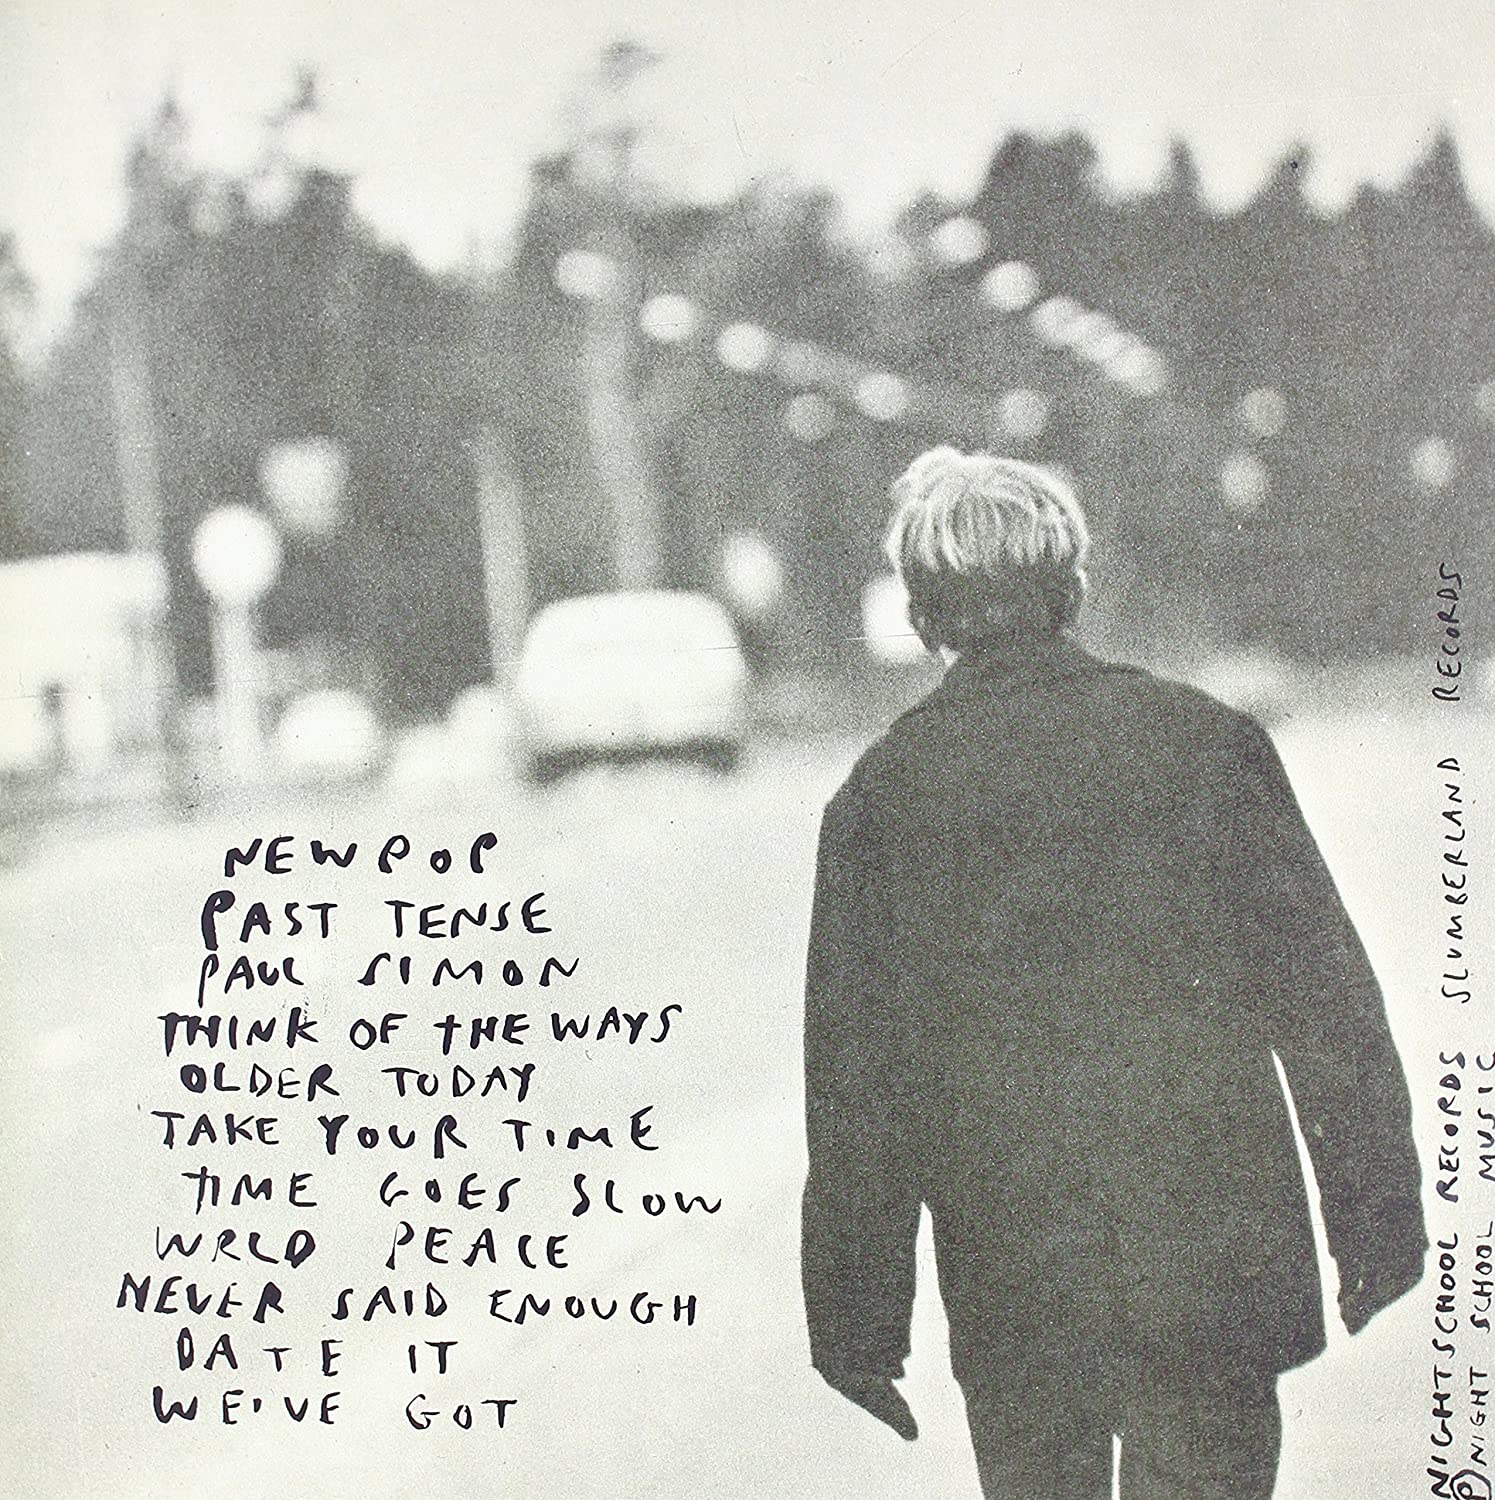 NEWPOP
PAST TENSE
PAUL SIMON
THINK OF THE WAYS
OLDER TODAY
TAKE YOUR TIME
TIME GOES SLOW
WRLD PEACE
NEVER SAID ENOUGH
DATE IT
WE'VE GOT
NIGHTSCHOOL RECORDS SLUMBERLAND RECORDS
Ⓟ NIGHT SCHOOL MUSIC